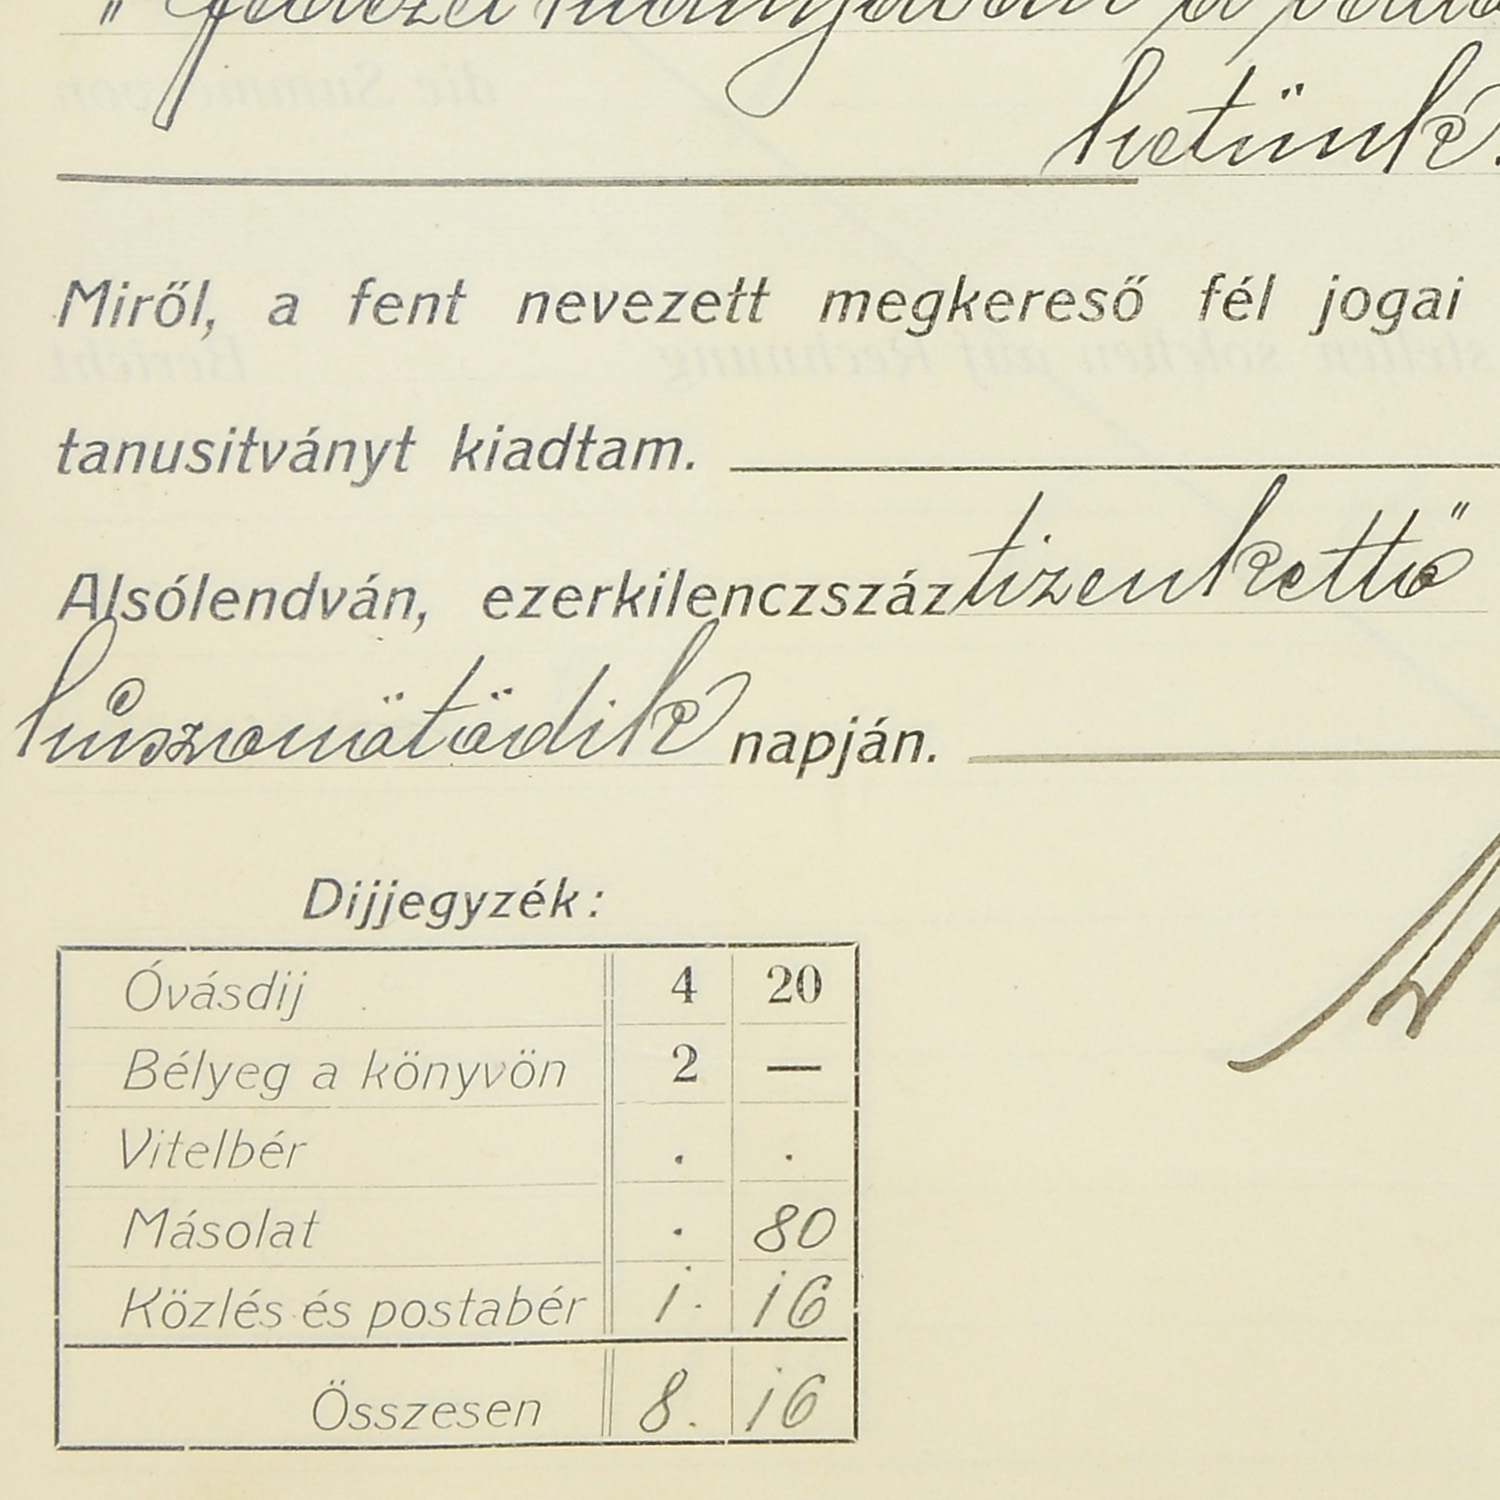 hetünk.
Miről, a fent nevezett megkereső fél jogai
tanusitványt kiadtam.
Alsólendván, ezerkilenczszáz tizenkettő
húszonötödik napján.
Dijjegyzék:
Óvásdij 4 20
Bélyeg a könyvön 2 —
Vitelbér . .
Másolat . 80
Közlés és postabér 1. 16
Összesen 8. 16